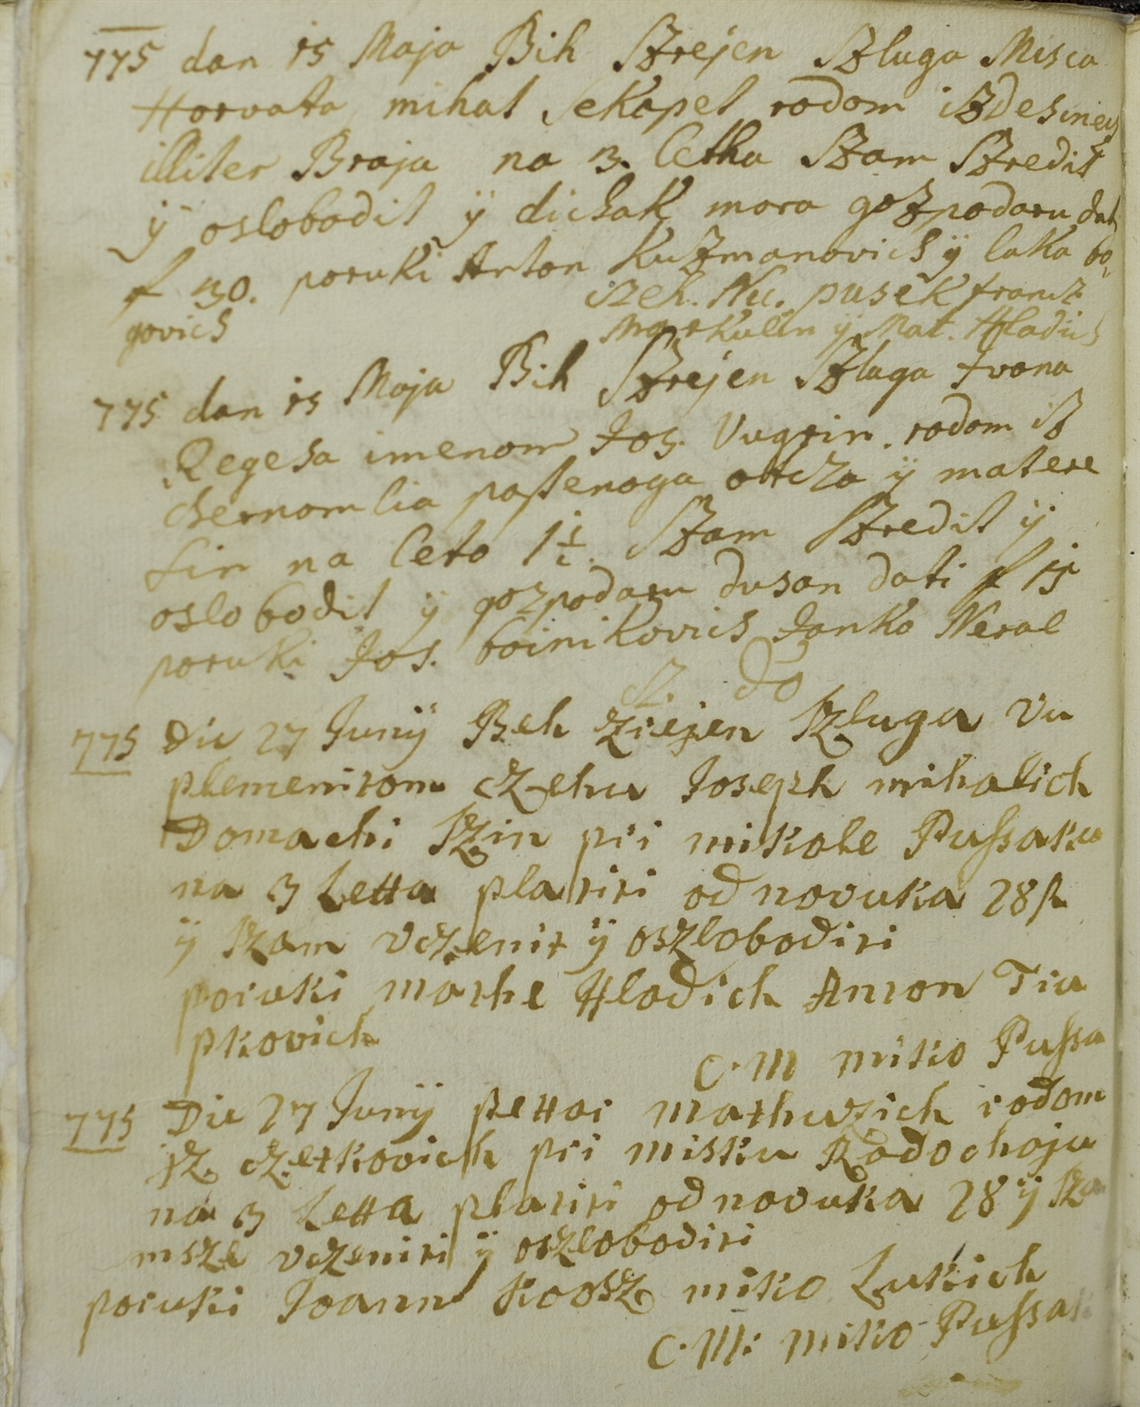 775 dan 15 Maja Bih Szrejen Szluga Misca
Horvata mihal Sekapel rodom iz Desinech
illiter Braja na 3. Letha Szam Szredit
ÿ oslobodil ÿ dichak mora gozpodaru dat
f 30. poruki Anton Kuzmanovich ÿ luka bo
govich czeh. Mi. pusek francz
Markulin ÿ Mat. Hladich
775 dan 15 Maja Bih Szrejen Szluga Ivona
Regesa imenom Jos. Vugrin. rodom iz
chernomlia postenoga otcza ÿ matere
sin na leto 1½. Szam Szredil ÿ
oslobodil ÿ gozpodaru dusan dati f 15
poruki Jos. boinikovich Janko Neral
775 Die 27 Junÿ Beh sziejen Szluga Vu
plemenitom czehu Joseph mihalich
Domachi Szin pri mikole Pussaku
na 3 Letta platiti od novuka 28 f
ÿ Szam vczenit ÿ oszloboditi
poruki mathe Hlodich Anton Tiu
pkovich
C. M miko Pussa
775 Die 27 Junÿ pettar Mathuzich rodom
iz czetkovich pri misku Radochaju
na 3 Letta platiti od novuka 28 ÿ Sza
msze vczeniti ÿ oszloboditi
poruki Joann Koosz miko Lukich
C. M: miko Pussak